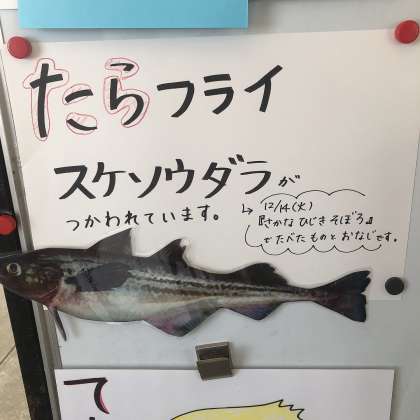 たらフライ
スケソウダラが
つかわれています。
12/14(火)
『さかなひじきそぼろ』
でたべたものとおなじです。
て